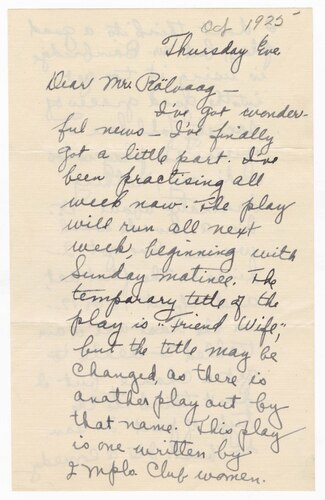 Oct 1925
Thursday Eve
Dear Mrs Rölvaag —
I've got wonder-
ful news — I've finally
got a little part. I've
been practising all
week now. The play
will run all next
week, beginning with
Sunday matinee. The
temporary title of the
play is "Friend Wife",
but the title may be
changed, as there is
another play out by
that name. This play
is one written by
2 Mpls. Club women.